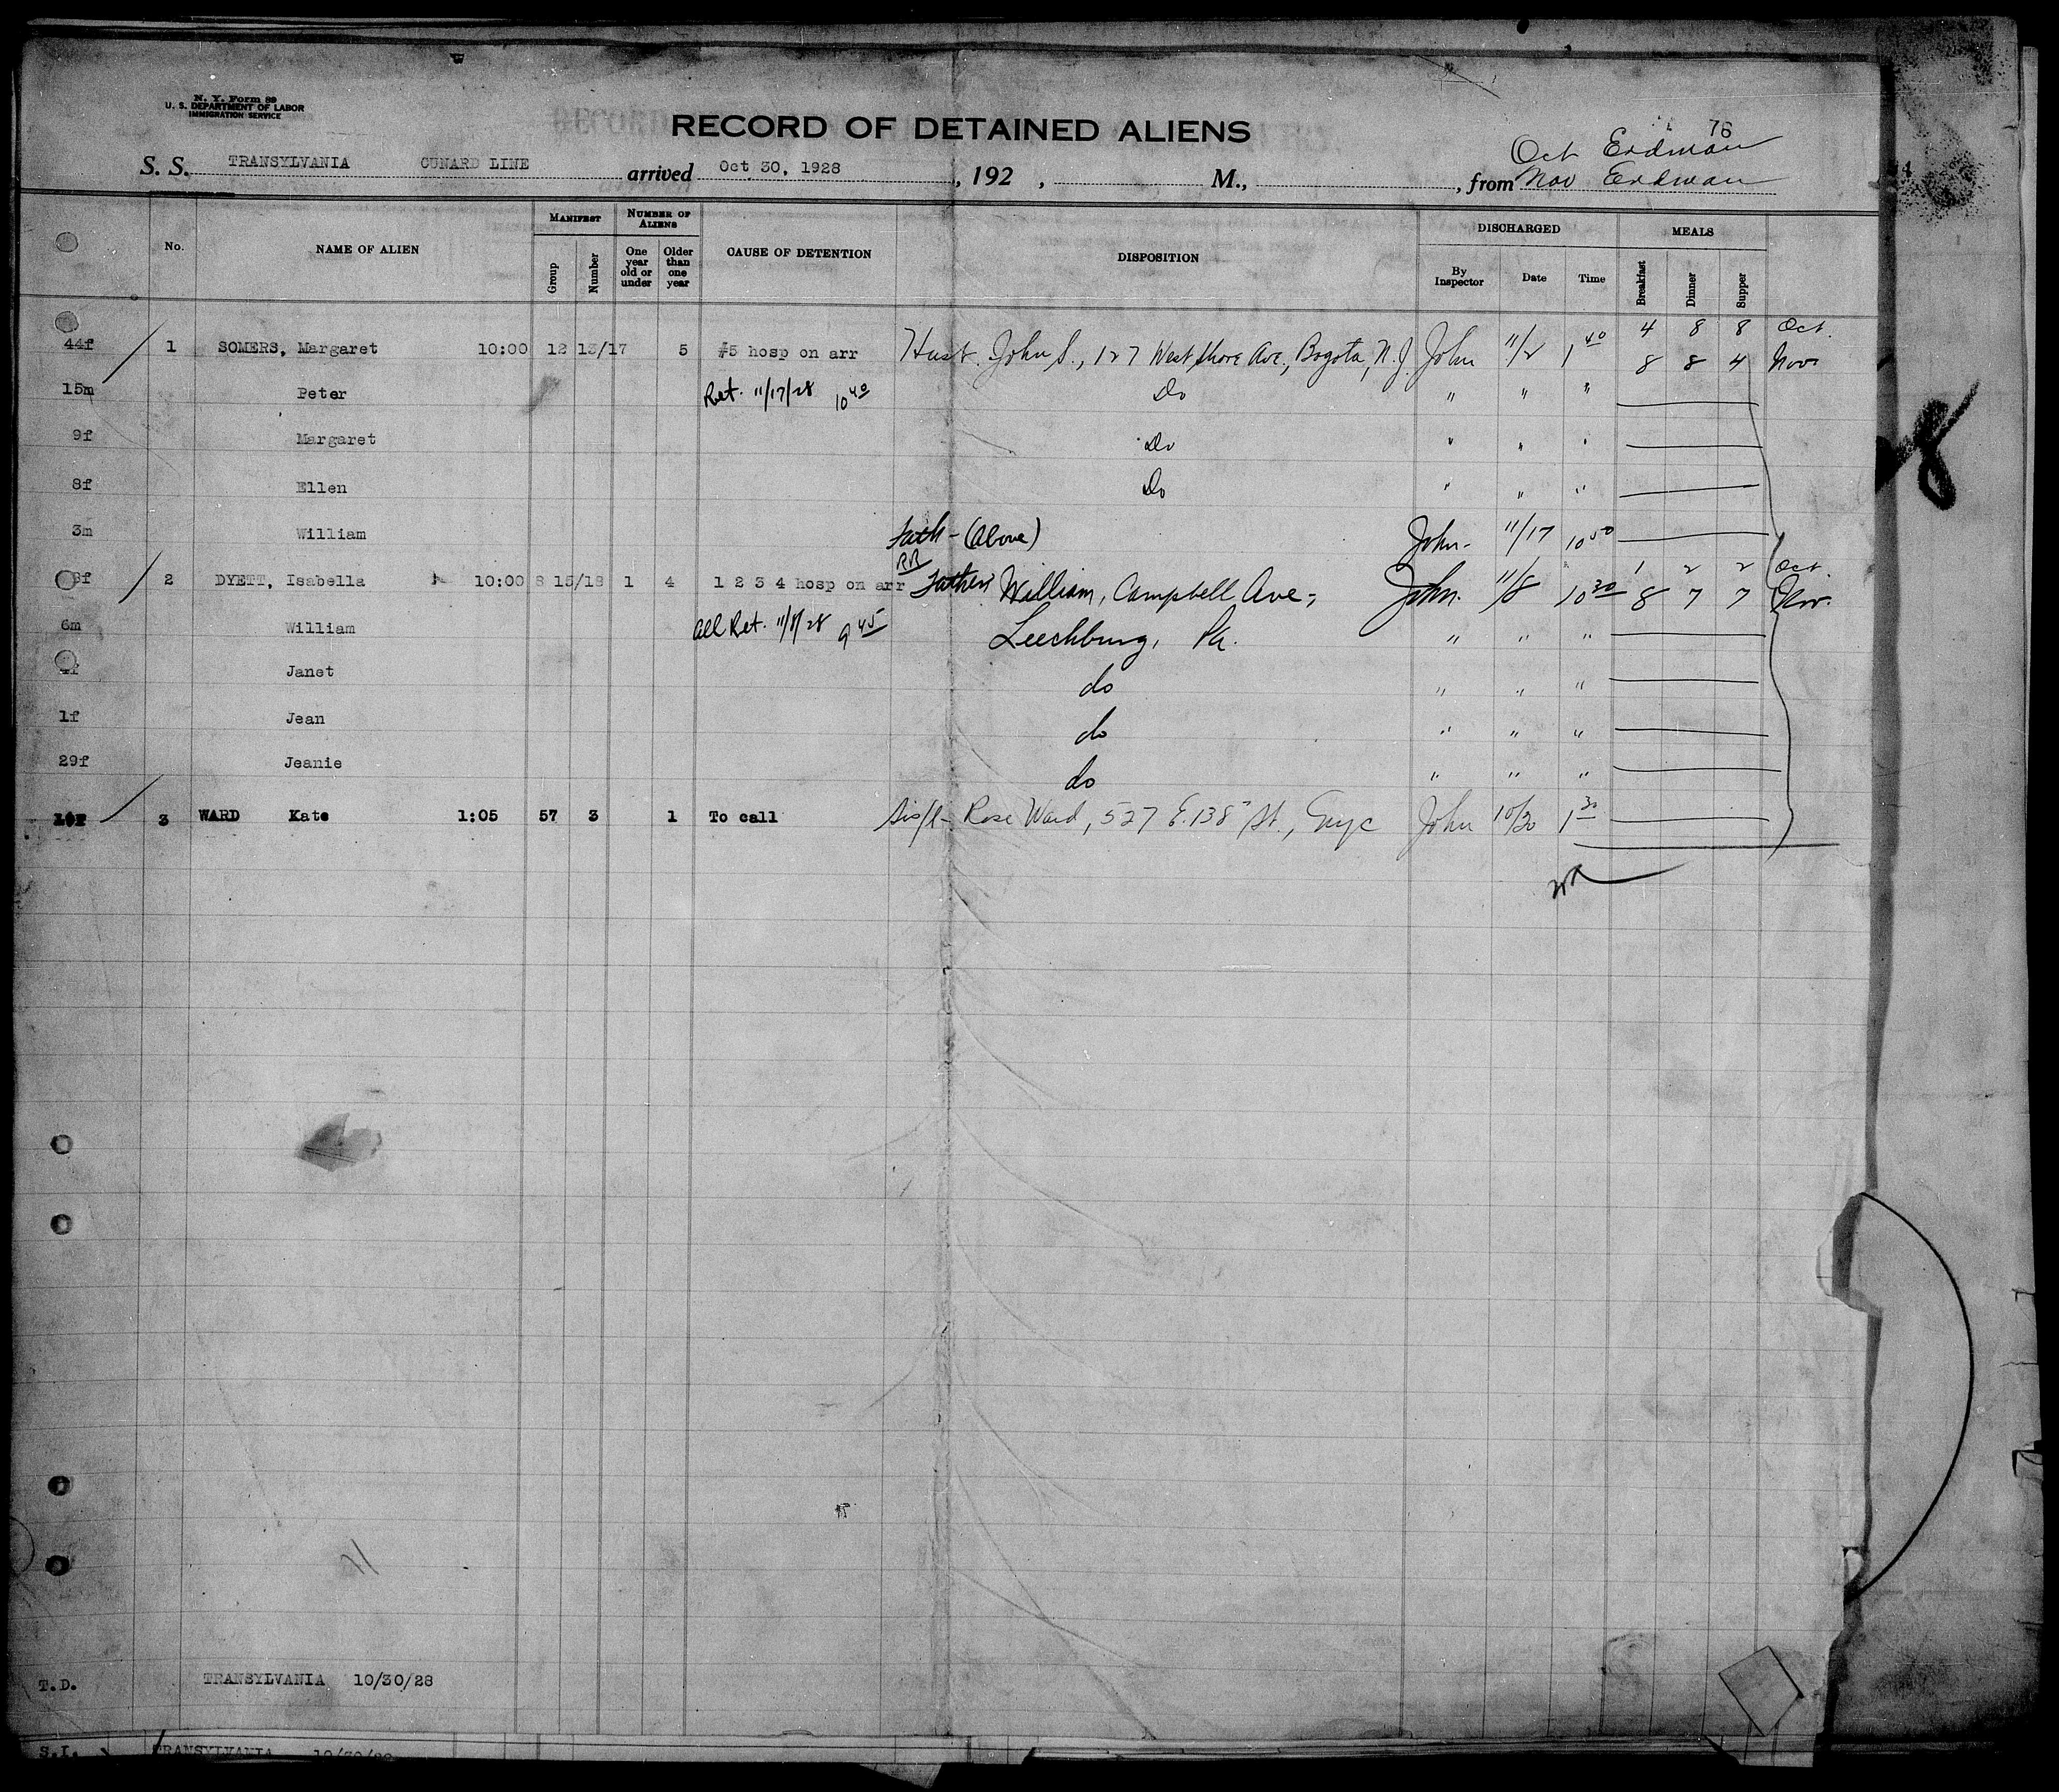 N. Y. Form 89
U. S. DEPARTMENT OF LABOR
IMMIGRATION SERVICE
RECORD OF DETAINED ALIENS
76
Oct Erdman
S. S. TRANSYLVANIA CUNARD LINE arrived Oct 30, 1928, 192 , M., , from Nov Erdman
No. NAME OF ALIEN MANIFEST Group Number NUMBER OF ALIENS One year old or under Older than one year CAUSE OF DETENTION DISPOSITION DISCHARGED By Inspector Date Time MEALS Breakfast Dinner Supper
4 8 8 Oct.
44f 1 SOMERS, Margaret 10:00 12 13/17 5 #5 hosp on arr Husb. John S., 127 West Shore Ave., Bogota, N.J. John 11/2 1 40 8 8 4 Nov
15m Peter Ret. 11/17/28 10 40 Do " " "
9f Margaret Do " " "
8f Ellen Do " " "
3m William Fath - (Above) John - 11/17 10 50
RR 1 2 2 Oct.
8f 2 DYETT, Isabella 10:00 8 15/18 1 4 1 2 3 4 hosp on arr Father William, Campbell Ave., John. 11/8 10 30 8 7 7 Nov.
6m William All Ret. 11/8/28 9 45 Leechburg, Pa. " " "
4f Janet do " " "
1f Jean do " " "
29f Jeanie do " " "
3 WARD Kate 1:05 57 3 1 To call Sis/l - Rose Ward, 527 E. 138" St., Nyc John 10/30 1 30
T.D. TRANSYLVANIA 10/30/28
S.I. TRANSYLVANIA 10/30/28